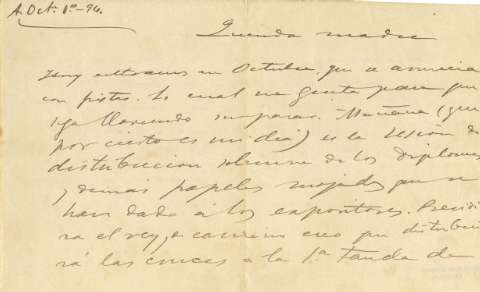 A. Oct. 1º–94.
Querida madre
Hoy entramos en Octubre, que se anuncia
con fiestas. Lo cual me gusta para que
siga lloviendo sin parar. Mañana (que
por cierto es mi día) es la sesión de
distribucion solemne de los diplomas
y demas papeles mojados que se
han dado á los expositores. Presidi
ra el rey, y creo que distribui
rá las cruces a la 1ª tanda de